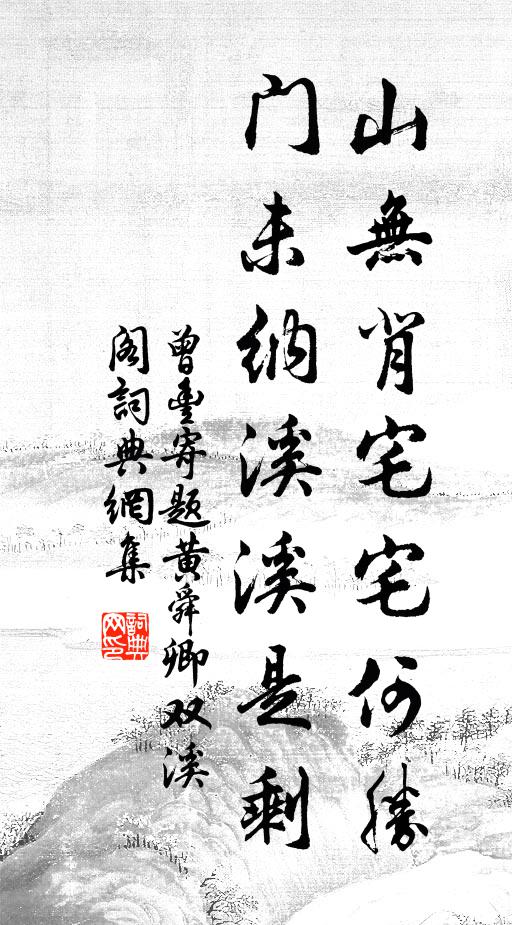 山無背宅宅何勝
门未納溪溪是剩
曾豐寄题黄舜卿双溪
阁詞典網集
詞典网印